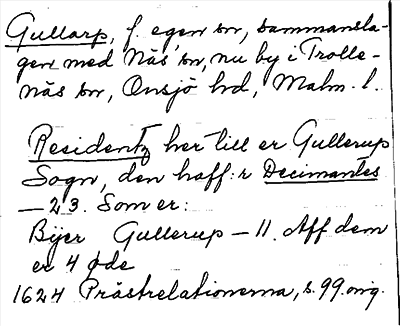 Gullarp, f. egen sn, sammansla-
gen med Näs sn, nu by i Trolle-
näs sn, Onsjö hd, Malm. l.
Residentz her till er Gullerup
Sogn, den haff:r Decimantes
— 23. Som er:
Bÿer Gullerup — 11. Aff dem
er 4 øde
1624 Prästrelationerna, s. 99. orig.